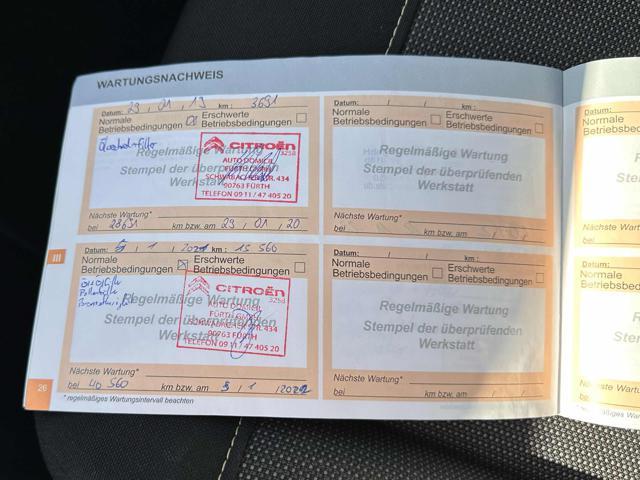 WARTUNGSNACHWEIS
Datum: 29, 01, 19 km: 3691
Normale Betriebsbedingungen
Erschwerte Betriebsbedingungen
Regelmäßige Wartung
CITROËN
3258
AUTO DOMICIL
FÜRTH GMBH
SCHWABACHER STR. 434
90763 FÜRTH
TELEFON 09 11 / 47 405 20
Nächste Wartung*
bei 28691 km bzw. am 29, 01, 20
Datum: 5, 1, 2021 km: 15 560
Normale Betriebsbedingungen
Erschwerte Betriebsbedingungen
Regelmäßige Wartung
Stempel der überprüfenden
Werkstatt
CITROËN
3258
AUTO DOMICIL
FÜRTH GMBH
SCHWABACHER STR. 434
90763 FÜRTH
TELEFON 09 11 / 47 405 20
Nächste Wartung*
bei 40 560 km bzw. am 5, 1, 2022
* regelmäßiges Wartungsintervall beachten
26
III
Datum: / / km:
Normale Betriebsbedingungen
Erschwerte Betriebsbedingungen
Regelmäßige Wartung
Stempel der überprüfenden
Werkstatt
Nächste Wartung*
bei km bzw. am / /
Datum: / / km:
Normale Betriebsbedingungen
Erschwerte Betriebsbedingungen
Regelmäßige Wartung
Stempel der überprüfenden
Werkstatt
Nächste Wartung*
bei km bzw. am / /